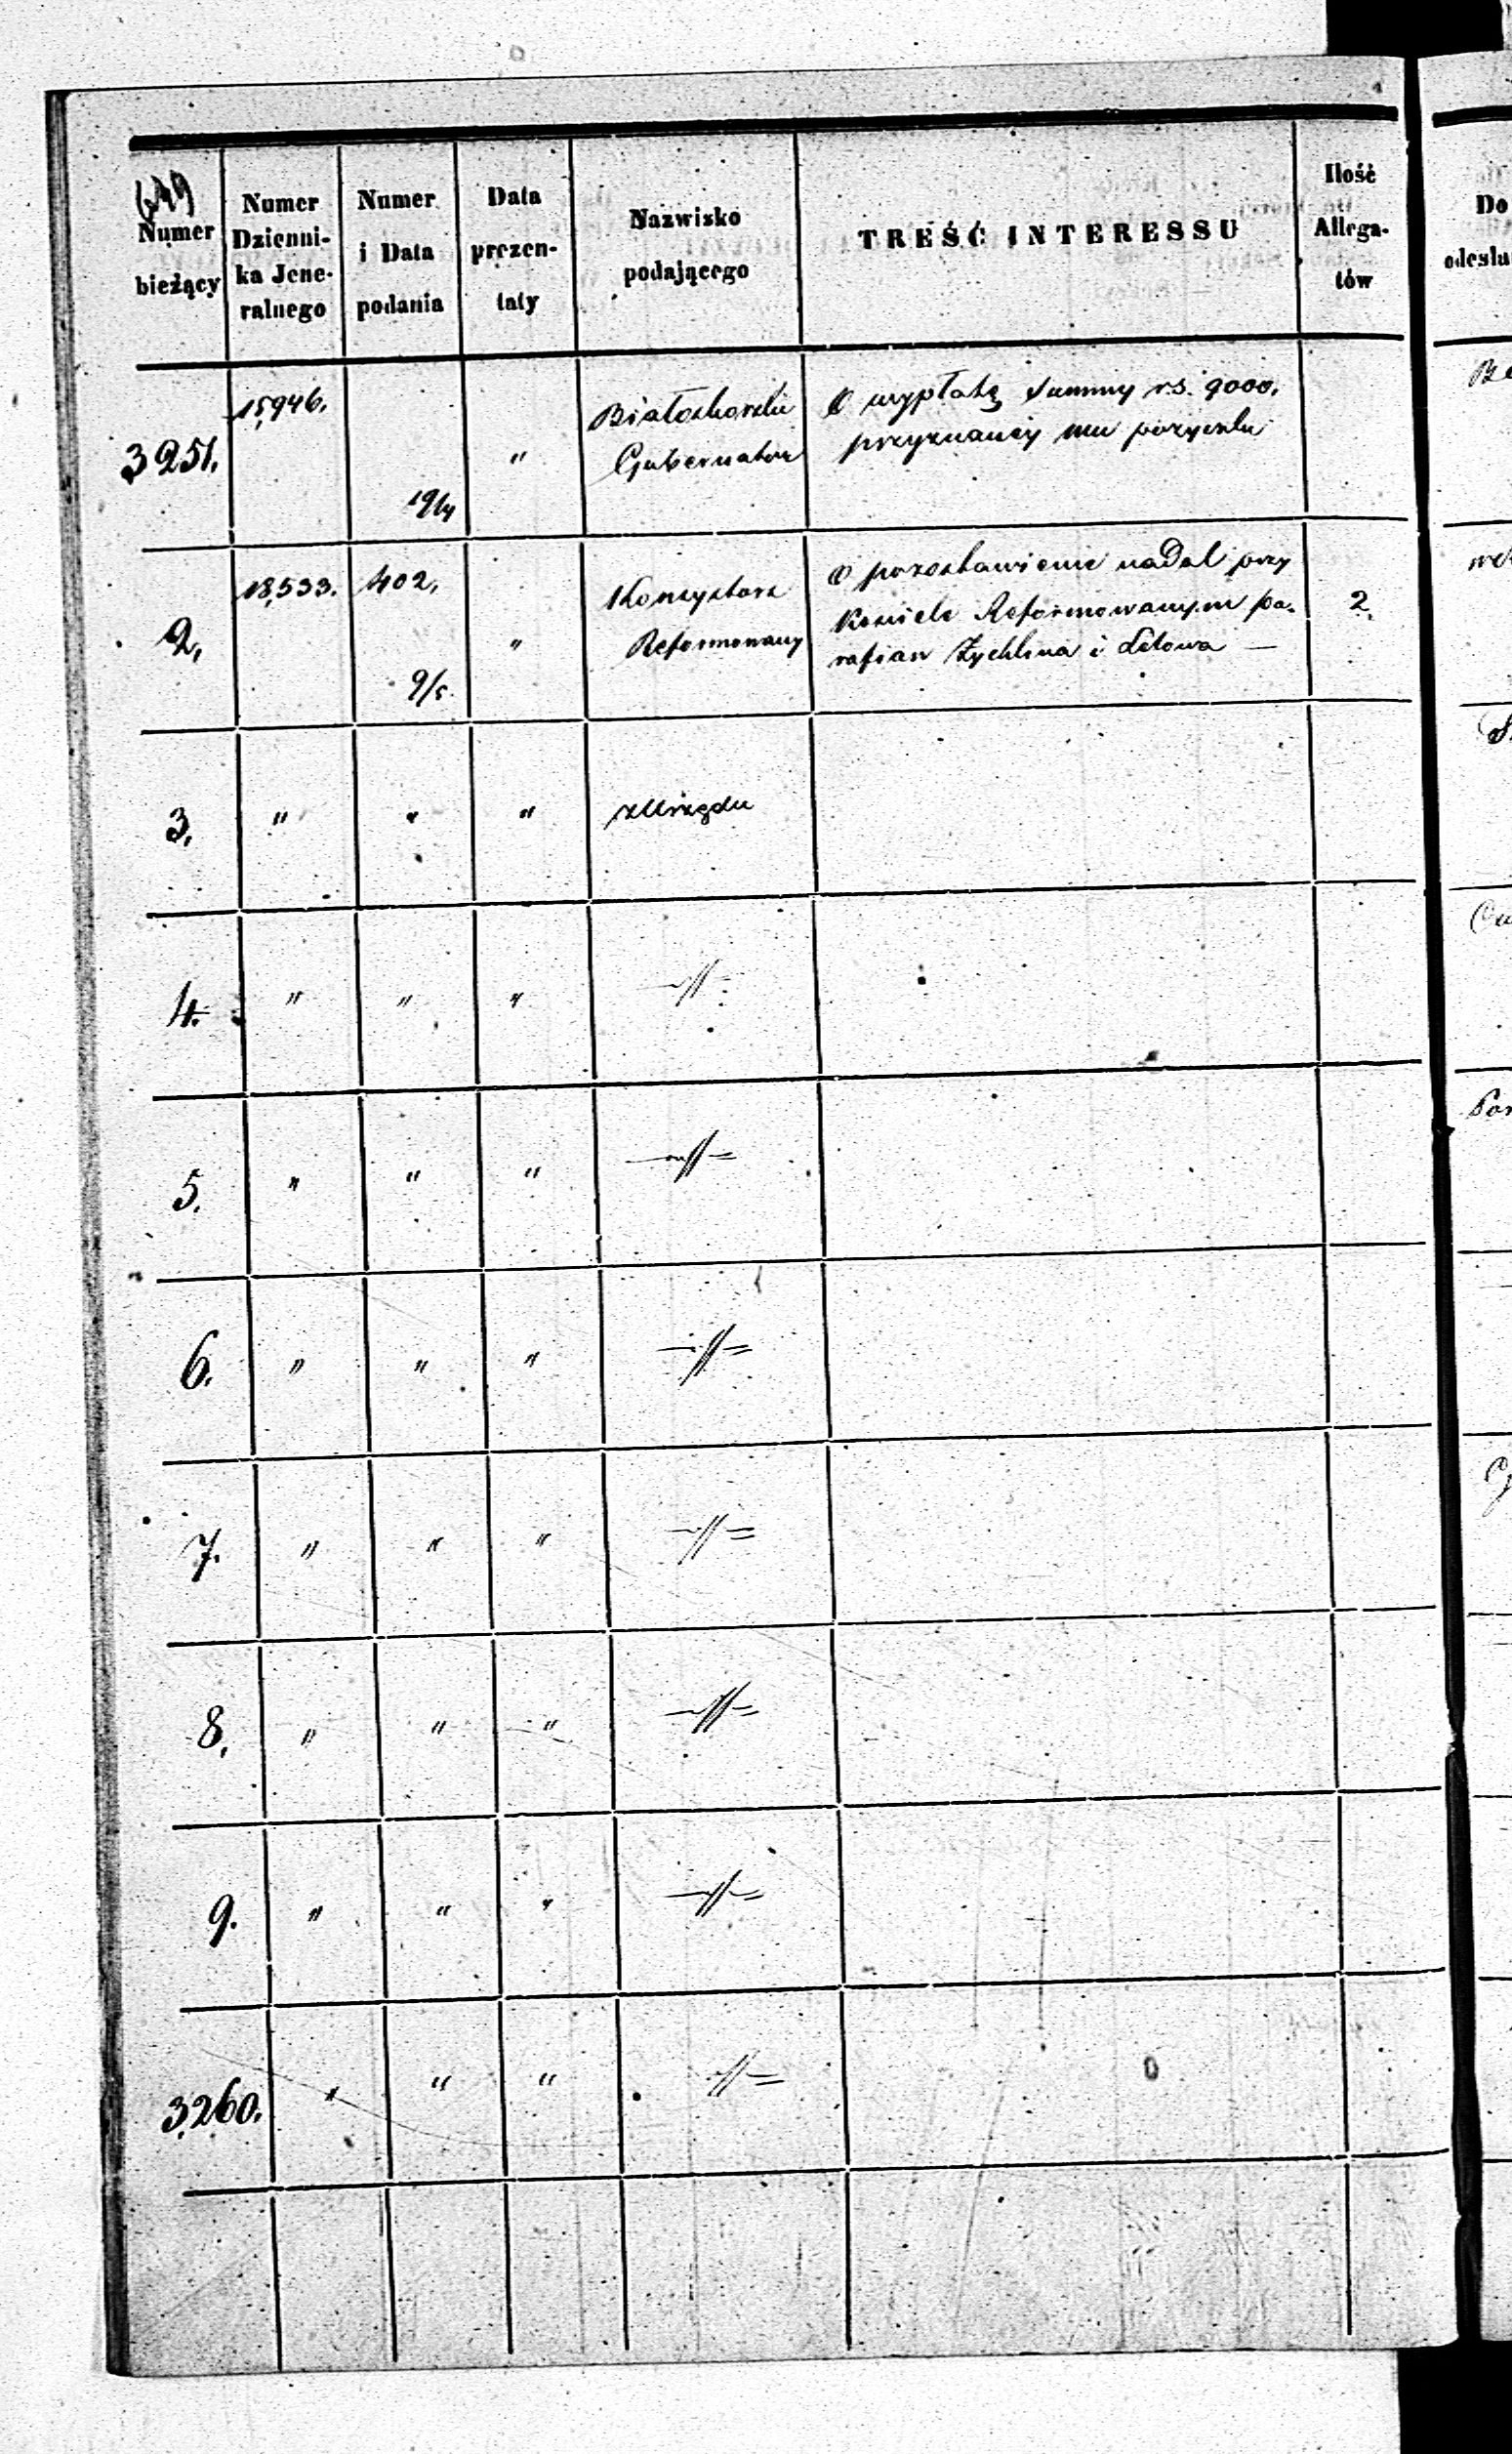 649
Numer bieżący
Numer Dzienni-ka Jene-ralnego
Numer i Data podania
Data prezen-taty
Nazwisko podającego
TREŚĆ INTERESSU
Ilość Allega-tów
Do
3251.
15,946.
19/4
"
Białoskorski
Gubernator
O wypłatę summy rs. 9000,
przyznanéy mu pożyczki
2,
18,533.
402,
9/5.
"
Konsystorz
Reformowany
O pozostawienie nadal przy
Kościele Reformowanym pa-
rafian Żychlina i
2.
3,
"
"
"
z Urzędu
4.
"
"
"
—//—
5.
"
"
"
—//—
6.
"
"
"
—//—
7.
"
"
"
—//—
8,
"
"
"
—//—
9.
"
"
"
—//—
3,260.
"
"
"
—//—